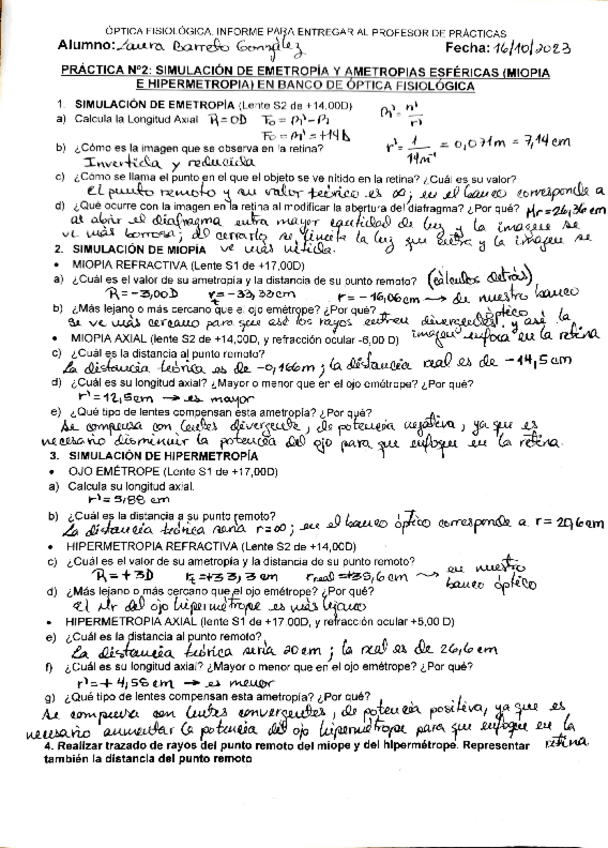 ÓPTICA FISIOLÓGICA. INFORME PARA ENTREGAR AL PROFESOR DE PRÁCTICAS
Alumno: Laura Barreto González Fecha: 16/10/2023
PRÁCTICA Nº2: SIMULACIÓN DE EMETROPÍA Y AMETROPIAS ESFÉRICAS (MIOPIA
E HIPERMETROPIA) EN BANCO DE ÓPTICA FISIOLÓGICA
1. SIMULACIÓN DE EMETROPÍA (Lente S2 de +14,00D)
a) Calcula la Longitud Axial R=0D
= +14D
b) ¿Cómo es la imagen que se observa en la retina? r'= 1/14m⁻¹ = 0,071m = 7,14 cm
Invertida y reducida
c) ¿Cómo se llama el punto en el que el objeto se ve nítido en la retina? ¿Cuál es su valor?
El punto remoto y su valor teórico es ∞; en el banco corresponde a
d) ¿Qué ocurre con la imagen en la retina al modificar la abertura del diafragma? ¿Por qué? Mr=26,36cm
al abrir el diafragma entra mayor cantidad de luz y la imagen se
ve más borrosa; al cerrarlo se limita la luz que entra y la imagen se
2. SIMULACIÓN DE MIOPÍA ve más nítida.
• MIOPIA REFRACTIVA (Lente S1 de +17,00D)
a) ¿Cuál es el valor de su ametropía y la distancia de su punto remoto? (cálculos detrás)
R=-3,00D r=-33,33cm r=-16,06cm → de nuestro banco
b) ¿Más lejano o más cercano que el ojo emétrope? ¿Por qué? óptico
Se ve más cercano para que así los rayos entren divergentes, y así la
• MIOPIA AXIAL (lente S2 de +14,00D, y refracción ocular -6,00 D) imagen enfoca en la retina
c) ¿Cuál es la distancia al punto remoto?
La distancia teórica es de -0,166m; la distancia real es de -14,5cm
d) ¿Cuál es su longitud axial? ¿Mayor o menor que en el ojo emétrope? ¿Por qué?
r'=12,5cm → es mayor
e) ¿Qué tipo de lentes compensan esta ametropía? ¿Por qué?
Se compensa con lentes divergente, de potencia negativa, ya que es
necesario disminuir la potencia del ojo para que enfoque en la retina.
3. SIMULACIÓN DE HIPERMETROPÍA
• OJO EMÉTROPE (Lente S1 de +17,00D)
a) Calcula su longitud axial.
r'=5,88 cm
b) ¿Cuál es la distancia a su punto remoto?
La distancia teórica seria r=∞; en el banco óptico corresponde a r=20,6cm
• HIPERMETROPIA REFRACTIVA (Lente S2 de +14,00D)
c) ¿Cuál es el valor de su ametropía y la distancia de su punto remoto?
R=+3D =+33,3cm real=+38,6cm → en nuestro
d) ¿Más lejano o más cercano que el ojo emétrope? ¿Por qué? banco óptico
El Mr del ojo hipermétrope es más lejano
• HIPERMETROPIA AXIAL (lente S1 de +17,00D, y refracción ocular +5,00 D)
e) ¿Cuál es la distancia al punto remoto?
La distancia teórica sería 20cm; la real es de 26,6cm
f) ¿Cuál es su longitud axial? ¿Mayor o menor que en el ojo emétrope? ¿Por qué?
r'=+4,55cm → es menor
g) ¿Qué tipo de lentes compensan esta ametropía? ¿Por qué?
Se compensa con lentes convergentes, de potencia positiva, ya que es
necesario aumentar la potencia del ojo hipermétrope para que enfoque en la
4. Realizar trazado de rayos del punto remoto del miope y del hipermétrope. Representar retina.
también la distancia del punto remoto